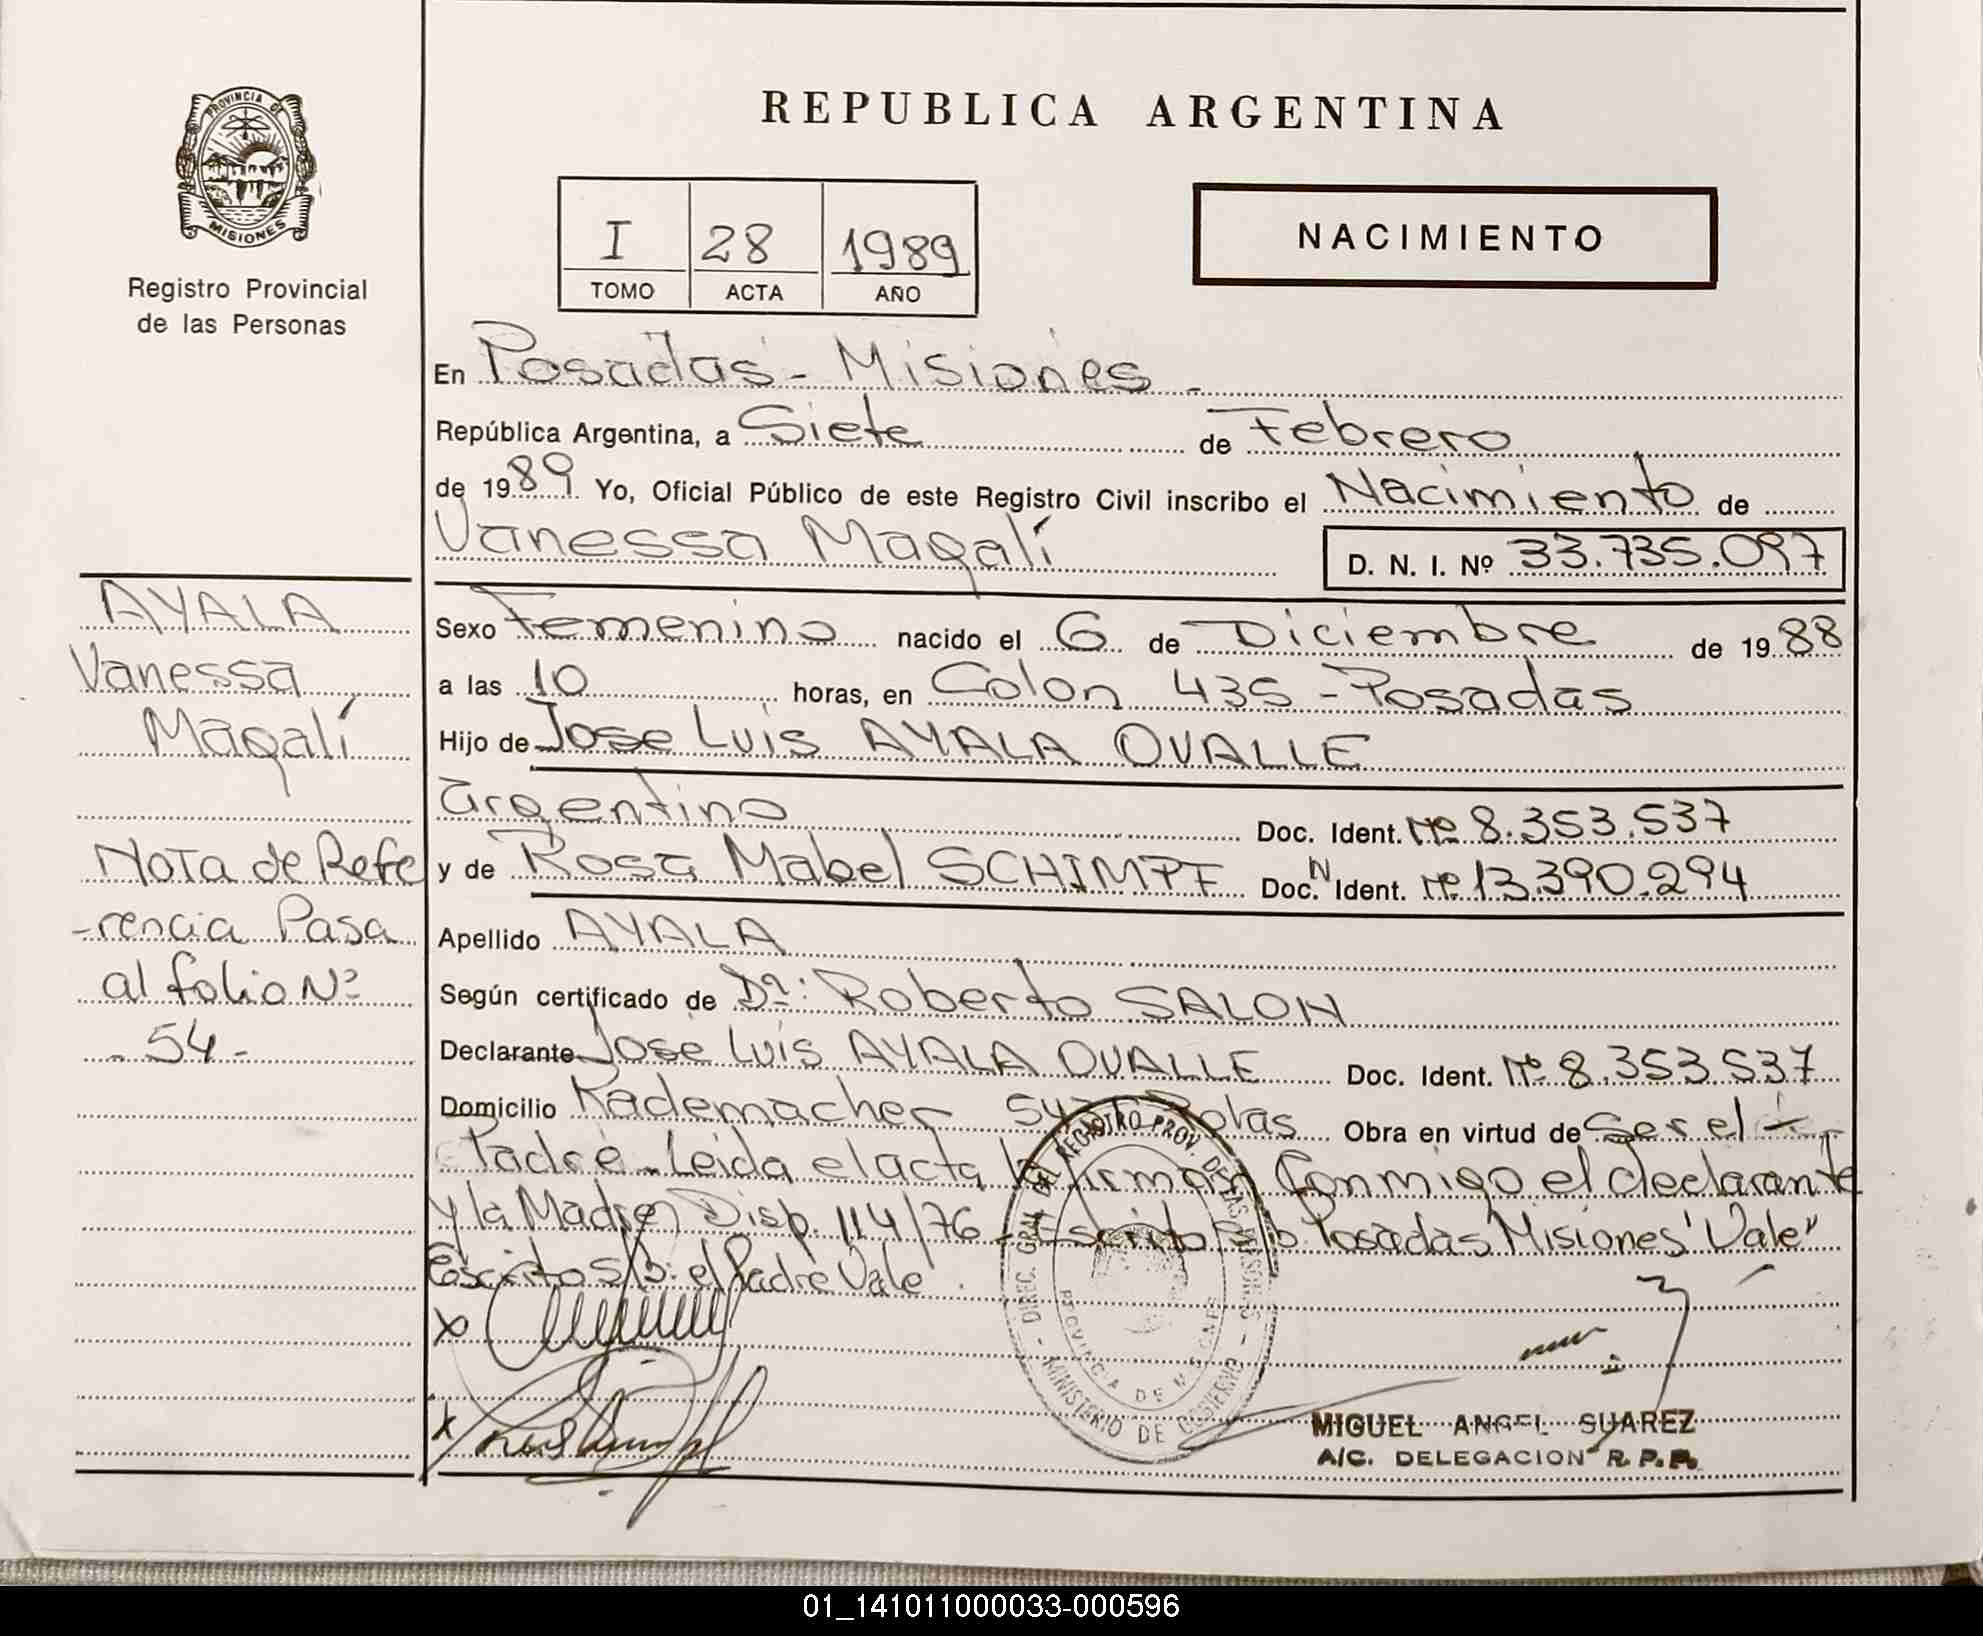 PROVINCIA DE
MISIONES
Registro Provincial
de las Personas
REPUBLICA ARGENTINA
I 28 1989
TOMO ACTA AÑO
NACIMIENTO
En Posadas - Misiones -
República Argentina, a Siete de Febrero
de 1989 Yo, Oficial Público de este Registro Civil inscribo el Nacimiento de
Vanessa Magalí D. N. I. Nº 33.735.097
Sexo Femenino nacido el 6 de Diciembre de 1988
a las 10 horas, en Colon 435 - Posadas
Hijo de Jose Luis AYALA OVALLE
argentino Doc. Ident. Nº 8.353.537
y de Rosa Mabel SCHIMPF Doc. N Ident. Nº 13.390.294
Apellido AYALA
Según certificado de Dr: Roberto SALON
Declarante Jose Luis AYALA OVALLE Doc. Ident. Nº 8.353.537
Domicilio Rademacher Obra en virtud de Ser el
Padre - Leida el acta la firman Conmigo el declarante
y la Madre Disp. 114/76 - Escrito s/b Posadas Misiones "Vale"
Escrito s/b: el Padre Vale
AYALA
Vanessa
Magalí
Nota de Refe
-rencia Pasa
al folio Nº
- 54 -
DIREC. GRAL DEL REGISTRO PROV. DE LAS PERSONAS
PROVINCIA DE MISIONES
- MINISTERIO DE GOBIERNO -
MIGUEL ANGEL SUAREZ
A/C. DELEGACION R. P. P.
01_141011000033-000596